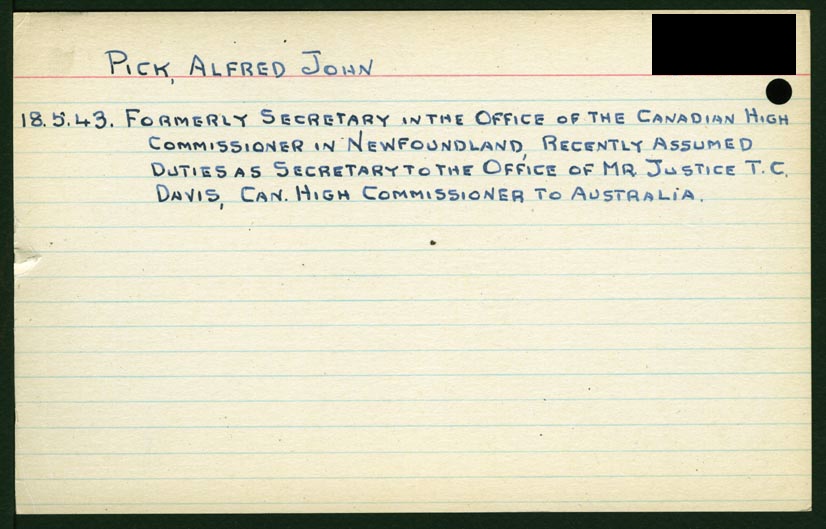 PICK, ALFRED JOHN
18.5.43. FORMERLY SECRETARY IN THE OFFICE OF THE CANADIAN HIGH
COMMISSIONER IN NEWFOUNDLAND, RECENTLY ASSUMED
DUTIES AS SECRETARY TO THE OFFICE OF MR JUSTICE T.C.
DAVIS, CAN. HIGH COMMISSIONER TO AUSTRALIA.